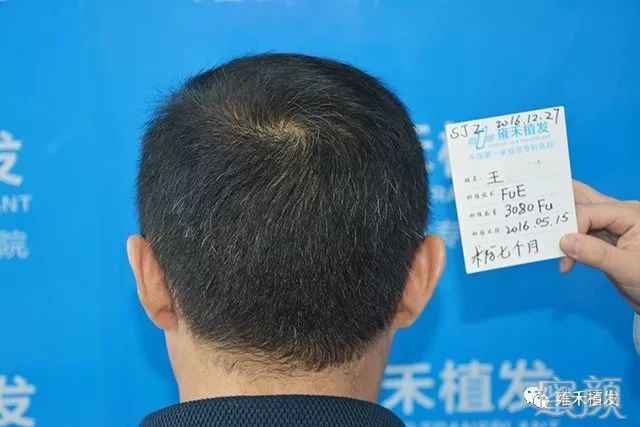 SJZ 2016.12.27
雍禾植发
中国第一家植发专科医院
姓名: 王
种植技术: FuE
种植数量: 3080Fu
种植日期: 2016.05.15
术后七个月
植发
院
雍禾植发
蜜颜
雍禾植发